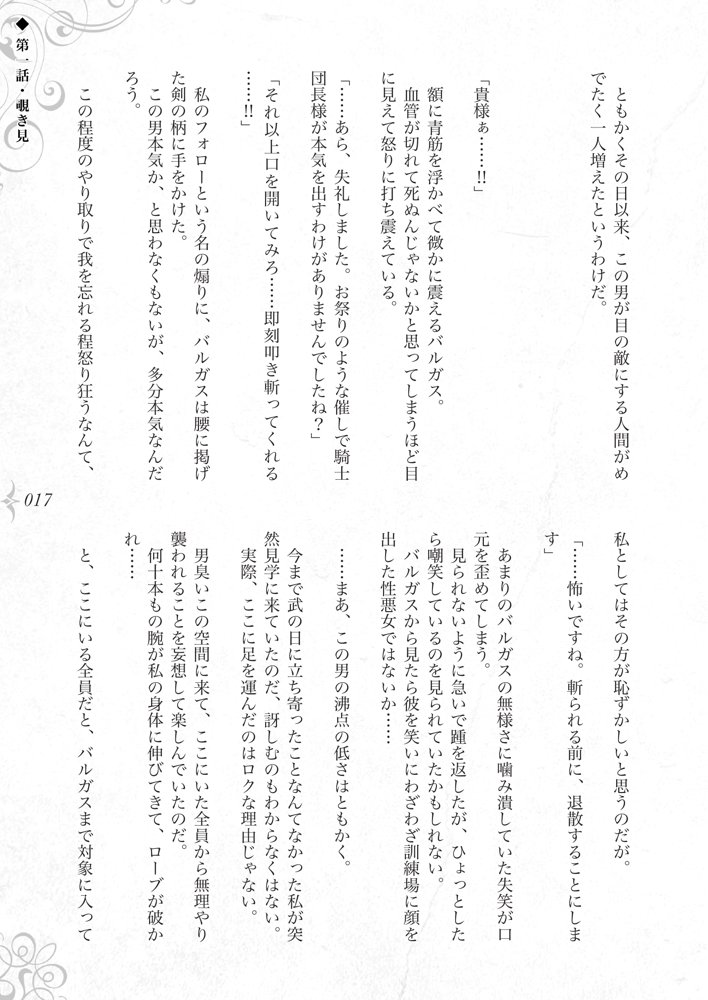 ◆第一話・覗き見
ともかくその日以来、この男が目の敵にする人間がめ
でたく一人増えたというわけだ。
「貴様ぁ……!!」
額に青筋を浮かべて微かに震えるバルガス。
血管が切れて死ぬんじゃないかと思ってしまうほど目
に見えて怒りに打ち震えている。
「……あら、失礼しました。お祭りのような催しで騎士
団長様が本気を出すわけがありませんでしたね？」
「それ以上口を開いてみろ……即刻叩き斬ってくれる
……!!」
私のフォローという名の煽りに、バルガスは腰に掲げ
た剣の柄に手をかけた。
この男本気か、と思わなくもないが、多分本気なんだ
ろう。
この程度のやり取りで我を忘れる程怒り狂うなんて、
私としてはその方が恥ずかしいと思うのだが。
「……怖いですね。斬られる前に、退散することにしま
す」
あまりのバルガスの無様さに噛み潰していた失笑が口
元を歪めてしまう。
見られないように急いで踵を返したが、ひょっとした
ら嘲笑しているのを見られていたかもしれない。
バルガスから見たら彼を笑いにわざわざ訓練場に顔を
出した性悪女ではないか……
……まあ、この男の沸点の低さはともかく。
今まで武の日に立ち寄ったことなんてなかった私が突
然見学に来ていたのだ、訝しむのもわからなくはない。
実際、ここに足を運んだのはロクな理由じゃない。
男臭いこの空間に来て、ここにいた全員から無理やり
襲われることを妄想して楽しんでいたのだ。
何十本もの腕が私の身体に伸びてきて、ローブが破か
れ……
と、ここにいる全員だと、バルガスまで対象に入って
017